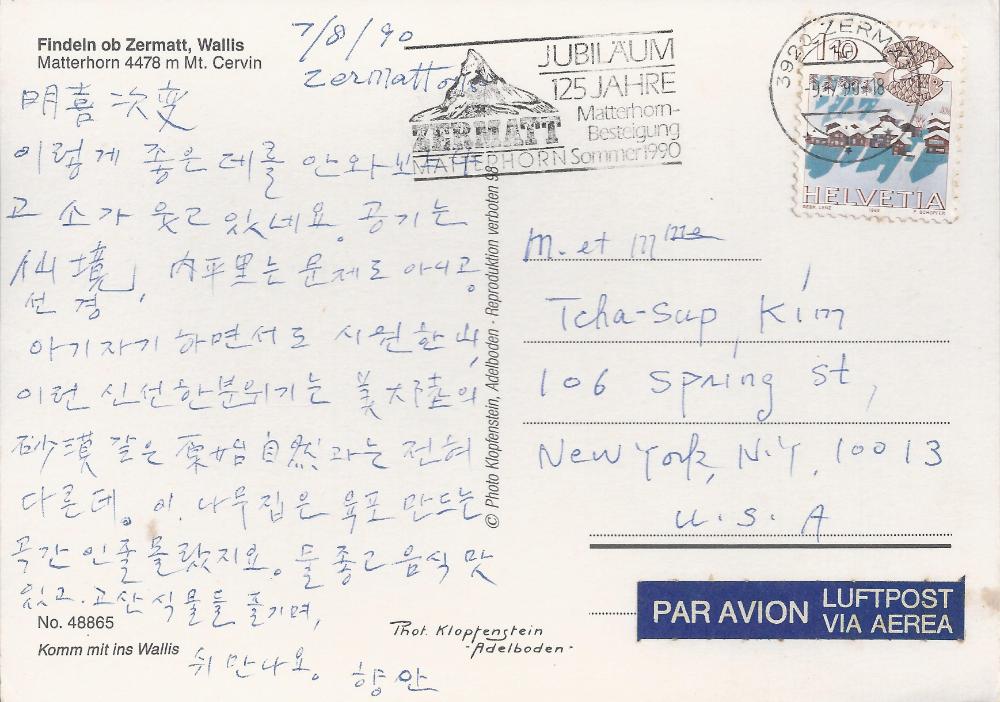 Findeln ob Zermatt, Wallis
Matterhorn 4478 m Mt. Cervin
7/8/90
Zermatt에서
明喜 次燮
이렇게 좋은 데를 안 와보았
고 소가 웃고 있네요. 공기는
仙境, 內平里는 문제도 아니고.
선경
아기자기 하면서도 시원한 山,
이런 신선한 분위기는 美大陸의
砂漠 같은 原始自然과는 전혀
다른데. 이 나무집은 육포 만드는
곡간인줄 몰랐지요. 물 좋고 음식 맛
있고. 고산식물들 즐기며,
쉬 만나요. 향안
No. 48865
Komm mit ins Wallis
Phot. Klopfenstein
-Adelboden-
© Photo Klopfenstein, Adelboden - Reproduktion verboten 98
JUBILÄUM
125 JAHRE
Matterhorn-
Besteigung
Sommer 1990
ZERMATT
MATTERHORN
3920 ZERMATT
110
HELVETIA
M. et Mme
Tcha-Sup, Kim
106 Spring St,
New York, N.Y. 10013
U.S.A
PAR AVION
LUFTPOST
VIA AEREA